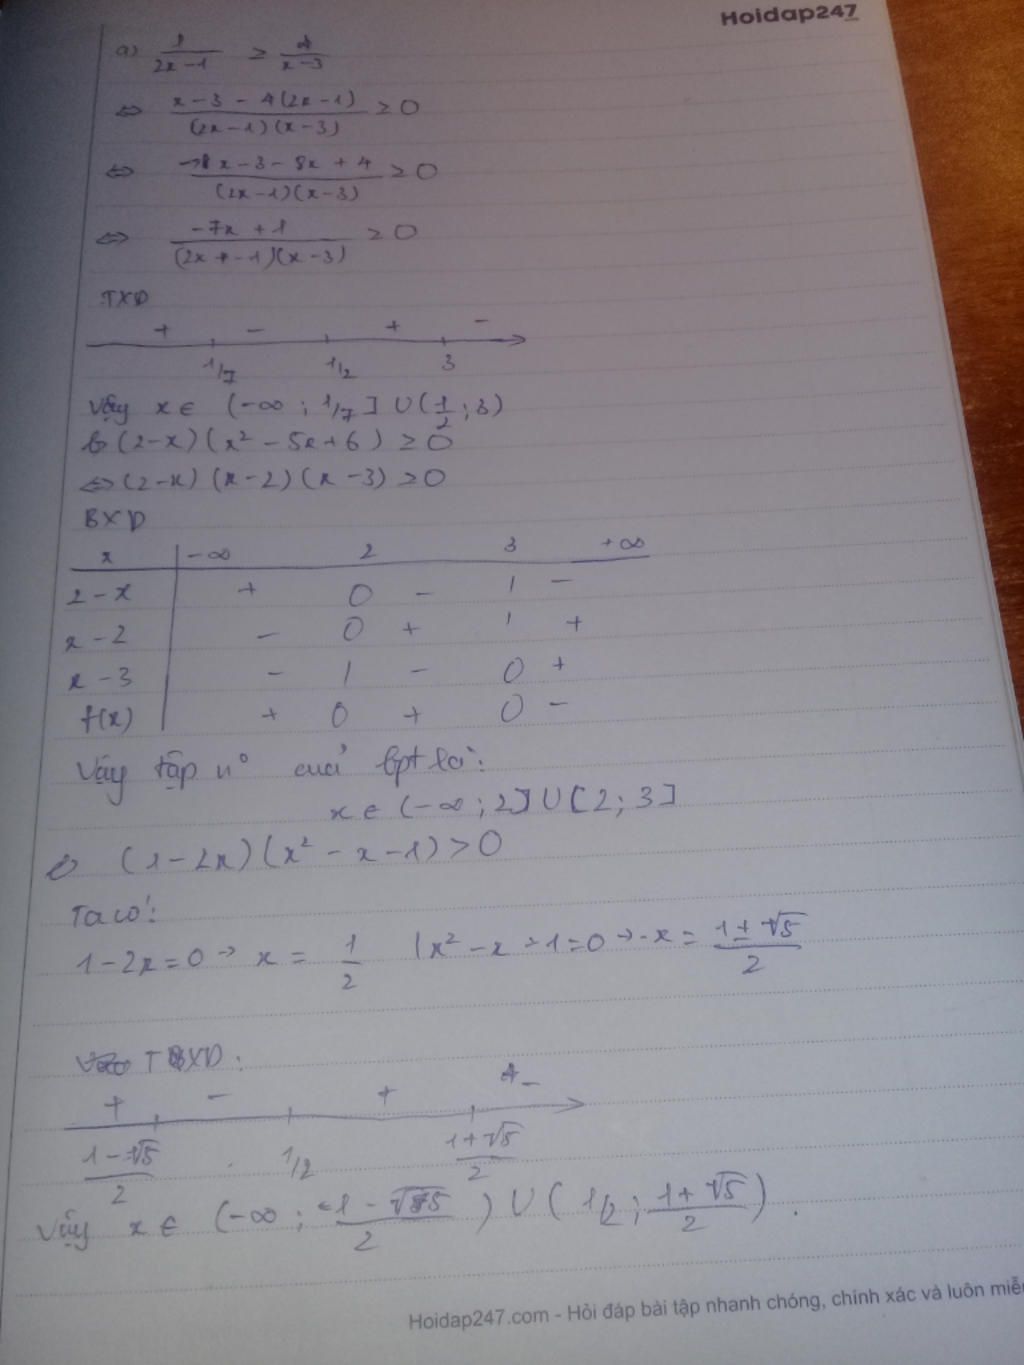 Hoidap247
a) 1/(2x-1) ≥ 4/(x-3)
⇔ (x-3-4(2x-1))/((2x-1)(x-3)) ≥ 0
⇔ (x-3-8x+4)/((2x-1)(x-3)) ≥ 0
⇔ (-7x+1)/((2x-1)(x-3)) ≥ 0
TXD
+ - + -
1/7 1/2 3
Vậy x ∈ (-∞; 1/7] ∪ (1/2; 3)
b (2-x)(x² - 5x+6) ≥ 0
⇔ (2-x)(x-2)(x-3) ≥ 0
BXD
x | -∞ 2 3 +∞
2-x | + 0 - | -
x-2 | - 0 + | +
x-3 | - | - 0 +
f(x) | + 0 + 0 -
Vậy tập n° của bpt là:
x ∈ (-∞; 2] ∪ [2; 3]
(1-2x)(x² - x - 1) > 0
Ta có:
1-2x=0 → x = 1/2 | x² - x - 1=0 → x = (1±√5)/2
BXD:
+ - + -
(1-√5)/2 1/2 (1+√5)/2
Vậy x ∈ (-∞; (1-√5)/2) ∪ (1/2; (1+√5)/2).
Hoidap247.com - Hỏi đáp bài tập nhanh chóng, chính xác và luôn